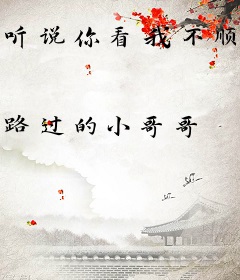 听说你看我不顺
路过的小哥哥